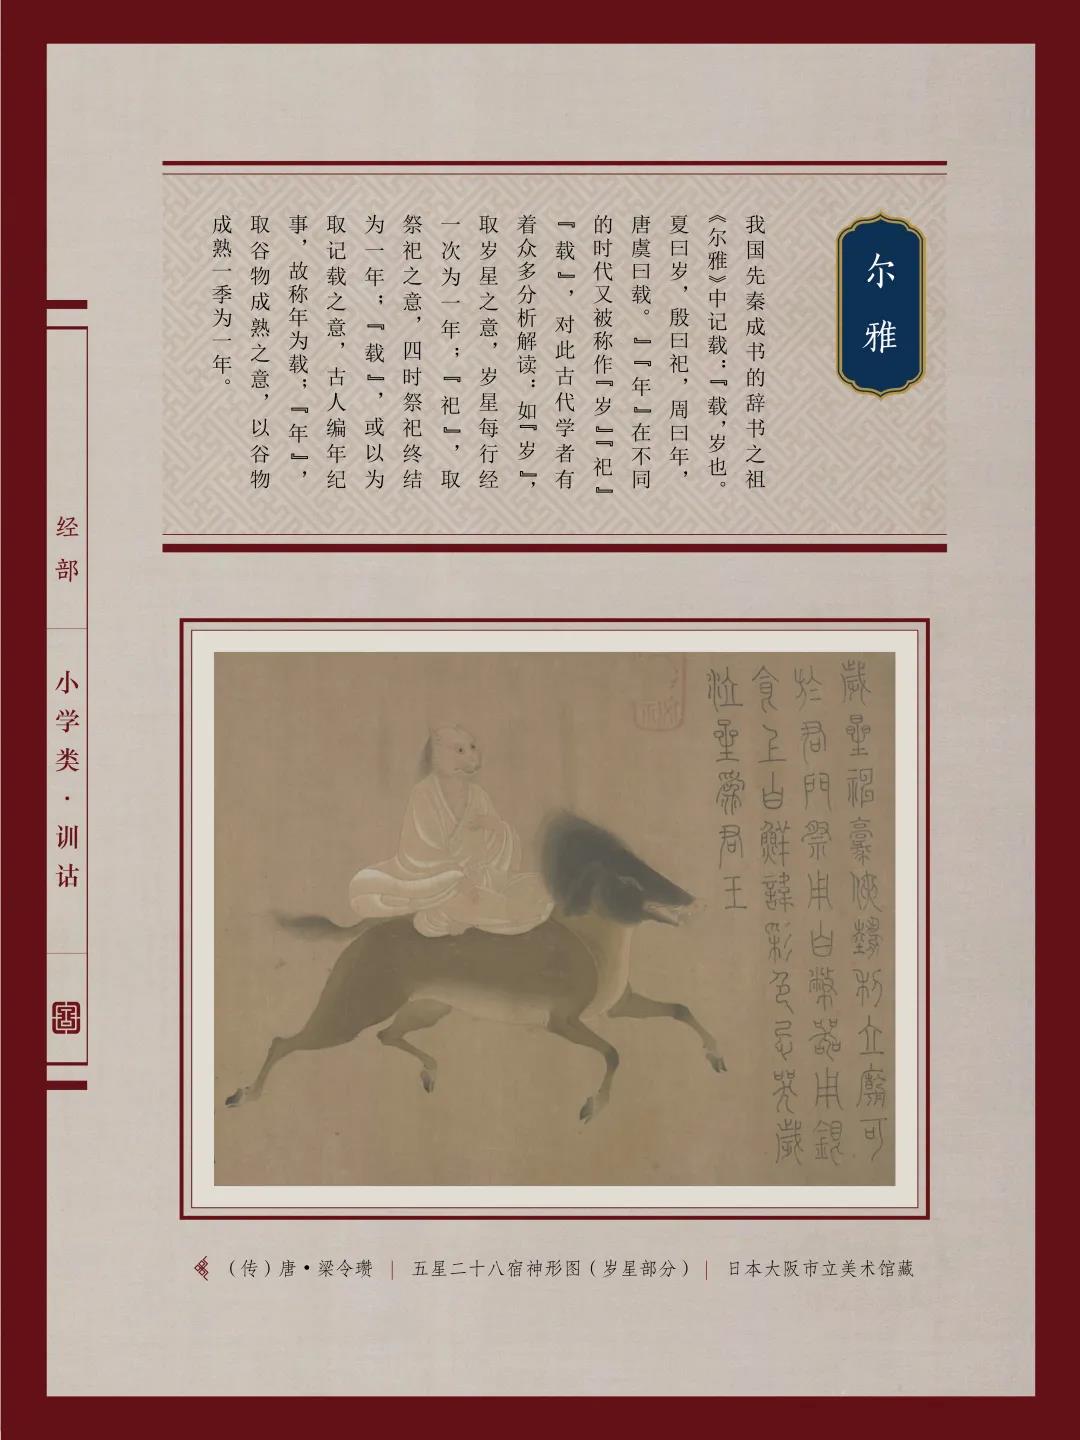 尔雅
我国先秦成书的辞书之祖
《尔雅》中记载：『载，岁也。
夏曰岁，殷曰祀，周曰年，
唐虞曰载。』『年』在不同
的时代又被称作『岁』『祀』
『载』，对此古代学者有
着众多分析解读：如『岁』，
取岁星之意，岁星每行经
一次为一年；『祀』，取
祭祀之意，四时祭祀终结
为一年；『载』，或以为
取记载之意，古人编年纪
事，故称年为载；『年』，
取谷物成熟之意，以谷物
成熟一季为一年。
经部
小学类·训诂
歲星神豪俠勢利立廟可
於君門祭用白幣器用銀
食上白鮮諱彩色忌哭歲
星為君王
（传）唐·梁令瓒｜五星二十八宿神形图（岁星部分）｜日本大阪市立美术馆藏